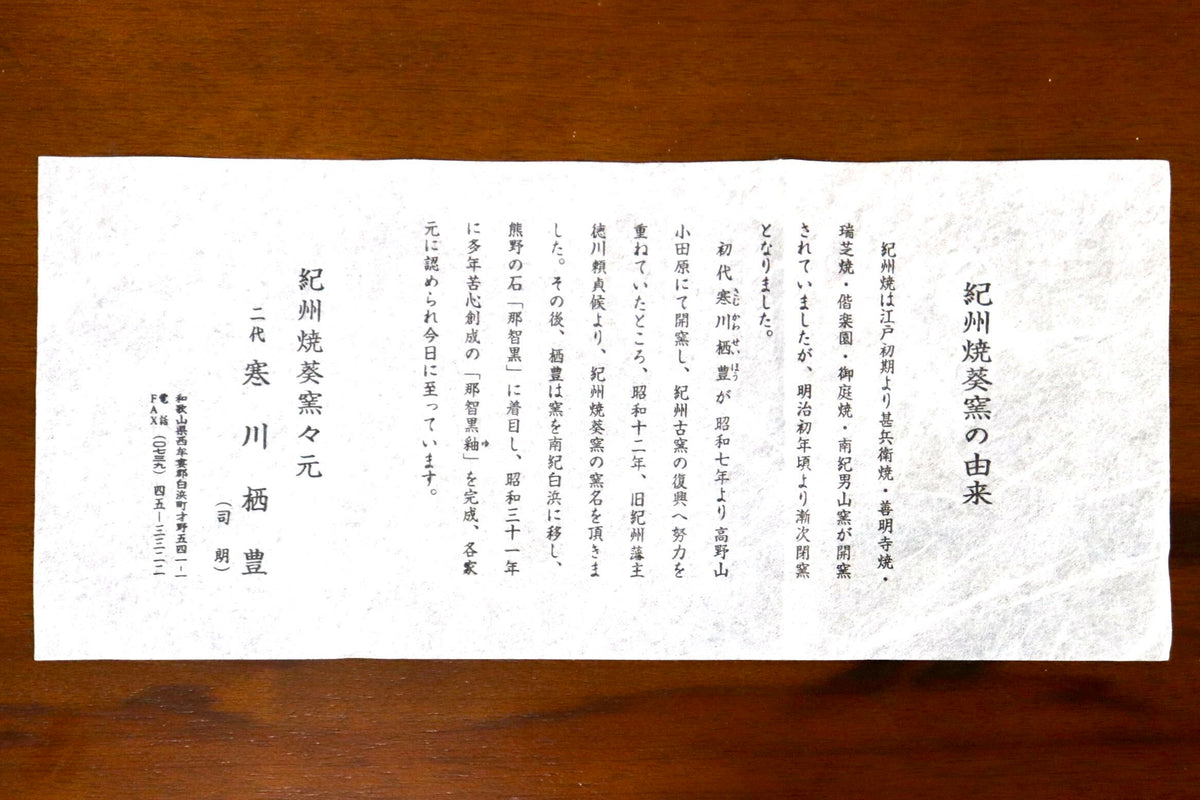 紀州焼葵窯の由来
紀州焼は江戸初期より甚兵衛焼・善明寺焼・
瑞芝焼・偕楽園・御庭焼・南紀男山窯が開窯
されていましたが、明治初年頃より漸次閉窯
となりました。
初代寒川栖豊が昭和七年より高野山
さむかわせいほう
小田原にて開窯し、紀州古窯の復興へ努力を
重ねていたところ、昭和十二年、旧紀州藩主
徳川頼貞候より、紀州焼葵窯の窯名を頂きま
した。その後、栖豊は窯を南紀白浜に移し、
熊野の石「那智黒」に着目し、昭和三十一年
に多年苦心創成の「那智黒釉」を完成、各家
ゆ
元に認められ今日に至っています。
紀州焼葵窯々元
二代 寒川栖豊
(司朗)
和歌山県西牟婁郡白浜町才野五四一-一
電話
FAX (〇七三九)四五-三三一二